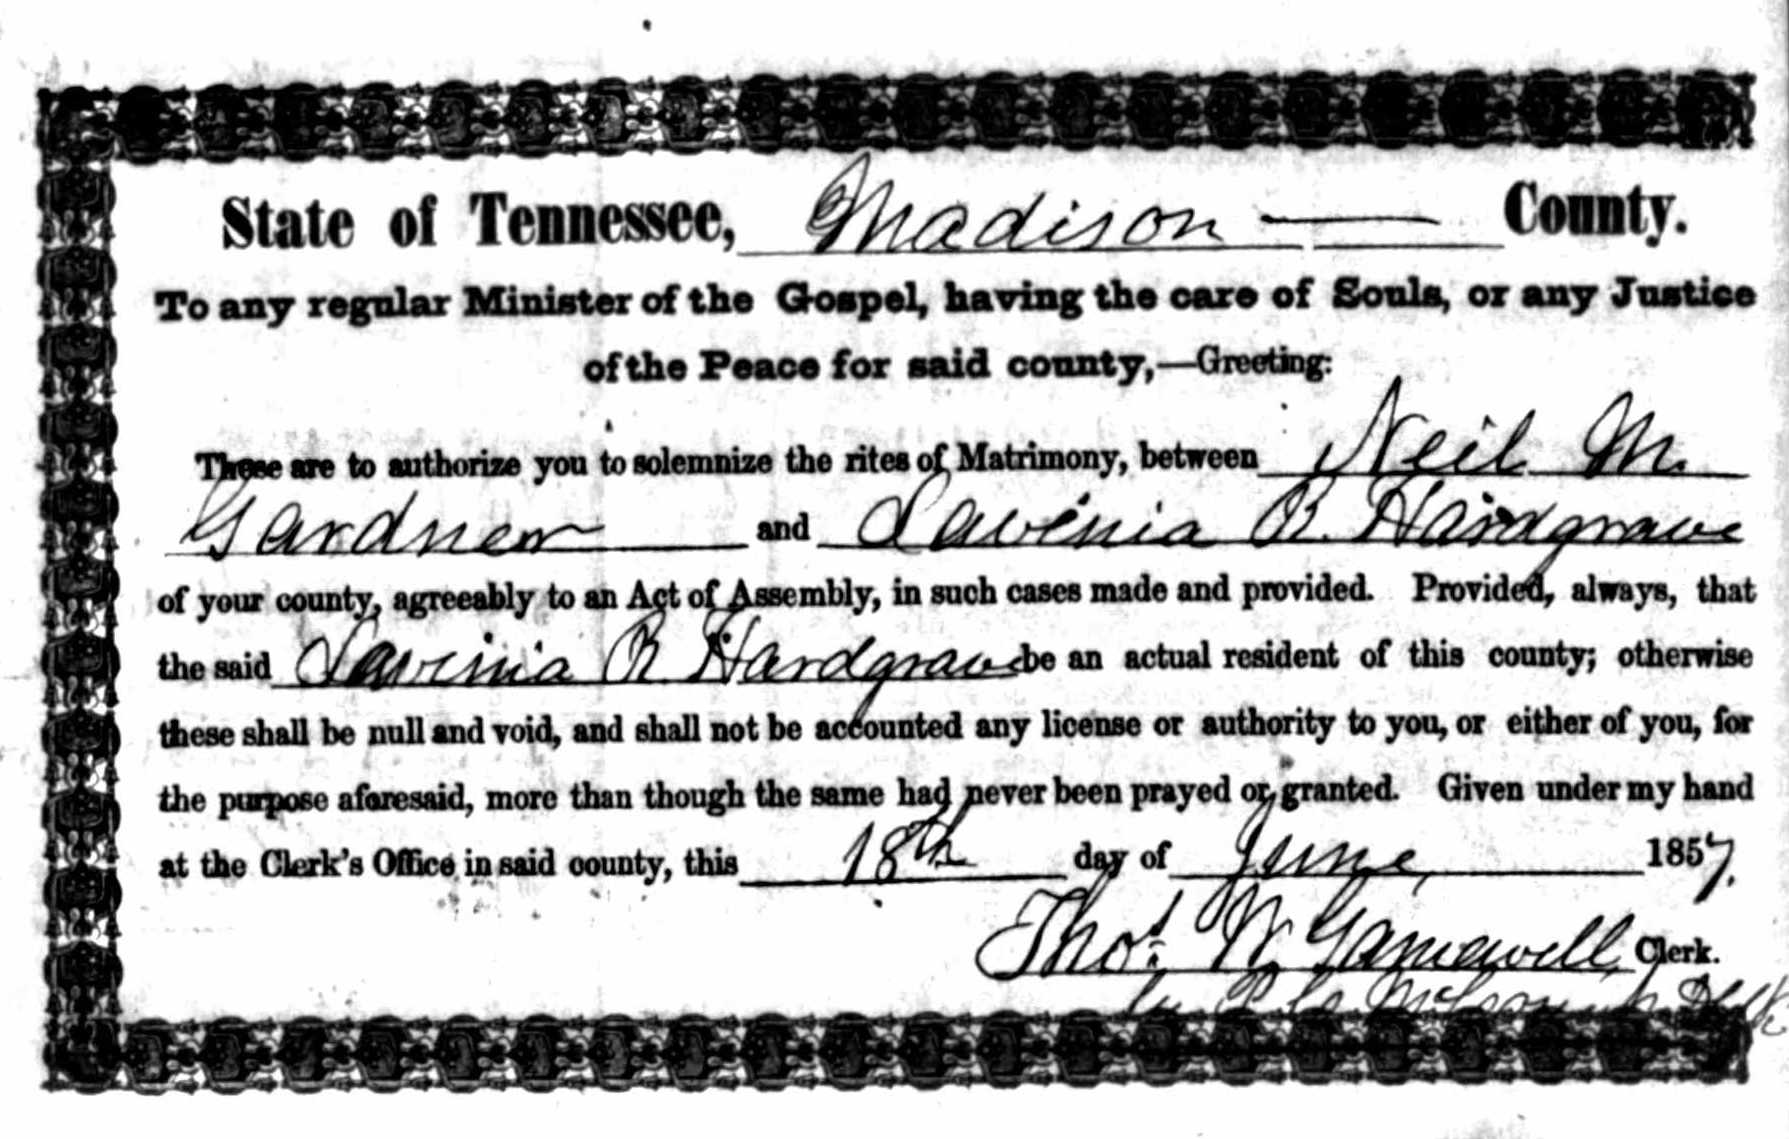 State of Tennessee, Madison County.
To any regular Minister of the Gospel, having the care of Souls, or any Justice
of the Peace for said county,—Greeting:
These are to authorize you to solemnize the rites of Matrimony, between Neil M.
Gardner and Lavinia R. Hardgrave
of your county, agreeably to an Act of Assembly, in such cases made and provided. Provided, always, that
the said Lavinia R Hardgrave be an actual resident of this county; otherwise
these shall be null and void, and shall not be accounted any license or authority to you, or either of you, for
the purpose aforesaid, more than though the same had never been prayed or granted. Given under my hand
at the Clerk's Office in said county, this 18th day of June, 1857.
Thos. W Gamewell, Clerk.
by P. C.